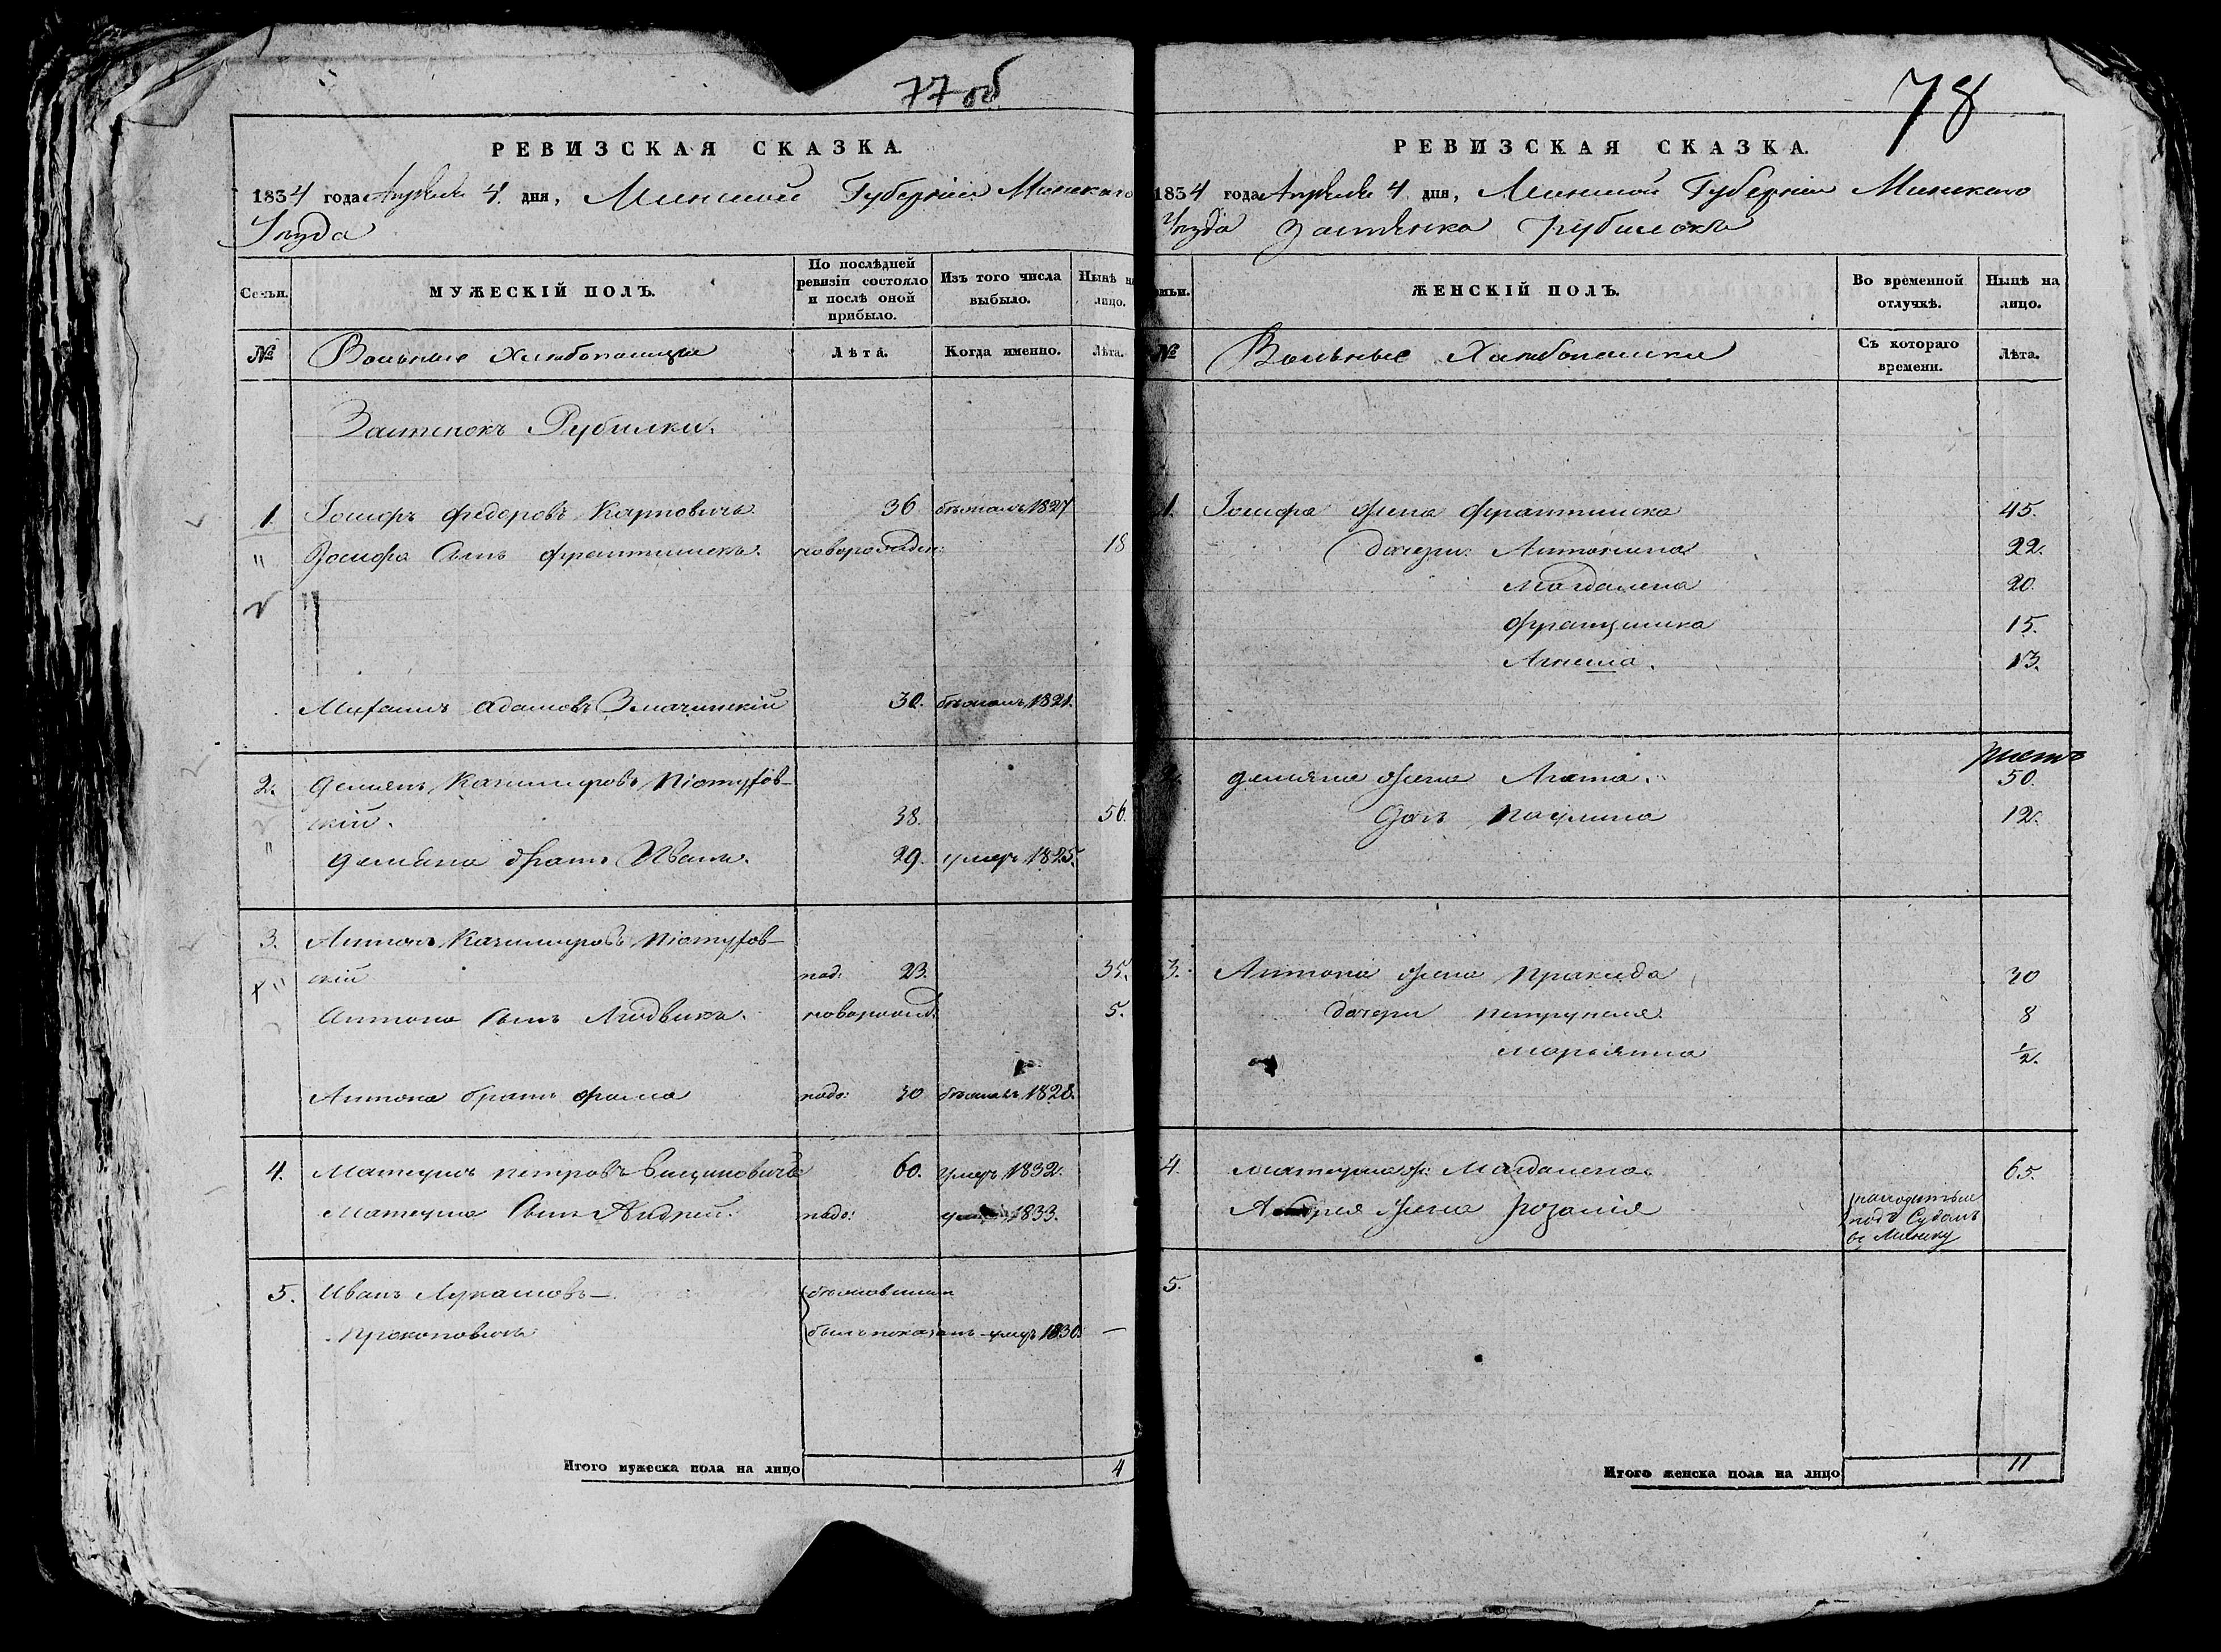 77 об
РЕВИЗСКАЯ СКАЗКА.
1834 года Апреля 4 дня, Минской Губерніи Минскаго
Уезда
Семьи.
МУЖЕСКІЙ ПОЛЪ.
По послѣдней ревизіи состояло и послѣ оной прибыло.
Изъ того числа выбыло.
Нынѣ на лицо.
№
Вольные Хлебопашцы
Лѣта.
Когда именно.
Лѣта.
Застенокъ Рубилки.
1. Іосифъ Федоровъ Карповичъ 36 бежалъ 1827
" Іосифа Сынъ Францишекъ. новорожден: 18
Михаилъ Адамовъ 30. бежалъ 1821.
2. Демьянъ Казимировъ
скій. 38. 56.
" Демьяна братъ Иванъ. 29. умеръ 1825.
3. Антонъ Казимировъ
скій над: 23. 35.
" Антона Сынъ Людвикъ. новорожд. 5.
Антона братъ Фома надо: 30 бежалъ 1828.
4. Матеушъ Петровъ 60. умеръ 1832.
Матеуша Сынъ Андрей. надо: 1833.
5. Иванъ Лукашовъ
Прокоповичъ былъ показанъ умеръ 1830. —
Итого мужеска пола на лицо 4
78
РЕВИЗСКАЯ СКАЗКА.
1834 года Апреля 4 дня, Минской Губерніи Минскаго
Уезда Застенка Рубилокъ
Семьи.
ЖЕНСКІЙ ПОЛЪ.
Во временной отлучкѣ.
Нынѣ на лицо.
№
Вольные Хлебопашцы
Съ котораго времени.
Лѣта.
1. Іосифа жена Францишка 45.
дочери: Антонина 22.
Магдалена 20.
Францишка 15.
Агнеша. 13.
2. Демьяна жена Агата. 50.
Дочь Паулина 12.
3. Антона жена Пракседа 30
дочери Петрунеля. 8
Марьянна ½.
4. Матеуша ж: Магдалена. 65.
Андрея жена Розалія находится
подъ Судомъ
въ Минску
5.
Итого женска пола на лицо 11